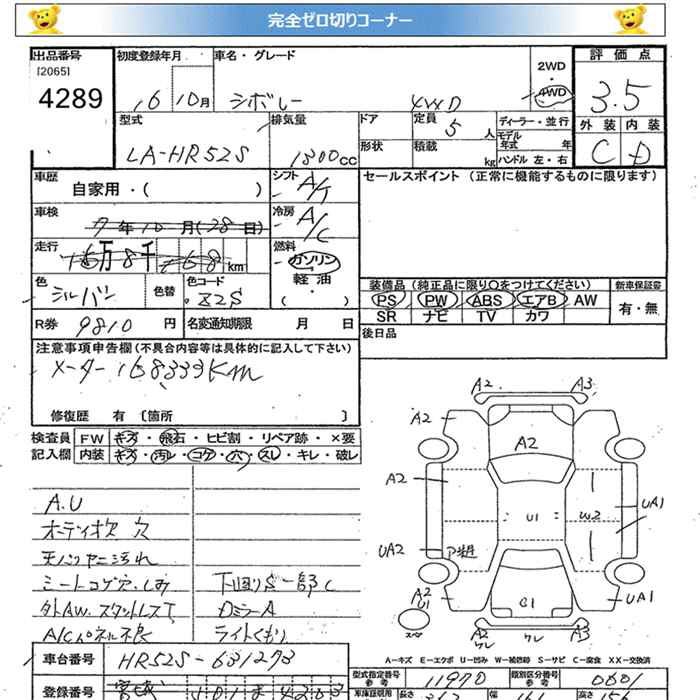 完全ゼロ切りコーナー
出品番号
[2065]
4289
初度登録年月
16 10月
車名・グレード
シボレー 4WD
2WD
・
4WD
評価点
3.5
外装 内装
C D
型式
LA-HR52S
排気量
1300cc
ドア
定員
5人
ディーラー・並行
モデル
年式 年
形状
積載
kg
ハンドル 左・右
車歴
自家用・( )
シフト
A/T
セールスポイント (正常に機能するものに限ります)
車検
7年10月(28日)
冷房
A/C
走行
16万8千 km
燃料
ガソリン
軽油
・
( )
色
シルバー
色替
色コード
Z2S
装備品 (純正品に限り○をつけてください)
新車保証書
PS PW ABS エアB AW
SR ナビ TV カワ
有・無
R券
9810 円
名変通知期限 月 日
後日品
注意事項申告欄(不具合内容等は具体的に記入して下さい)
メーター 168333Km
修復歴 有 〔箇所 〕
検査員
記入欄
FW キズ・飛石・ヒビ割・リペア跡・×要
内装 キズ・汚レ・コゲ・穴・スレ・キレ・破レ
A.U
オーディオ欠 穴
天バリヤニ汚れ
シートコゲ穴.しみ
外AW.スタットレスT
A/Cパネル不良
下回りS一部C
DミラーA
ライトくもり
A2 A3
A2
A2
A2
U1
U2
UA1
UA2
A2
U1
C1
UA1
スペア
A2
クレ
クレ
A3
A-キズ E-エクボ U-凹み W-補修跡 S-サビ C-腐食 XX-交換済
車台番号
HR52S-631273
型式指定番号
参考
11970
類別区分番号
参考
0001
登録番号
宮城
車庫証明用
長さ
幅
高さ